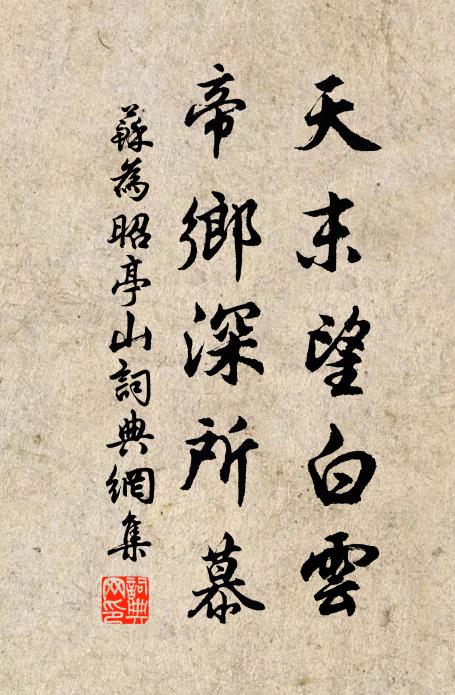 天末望白雲
帝鄉深所慕
蘇為昭亭山詞典網集
詞典網印